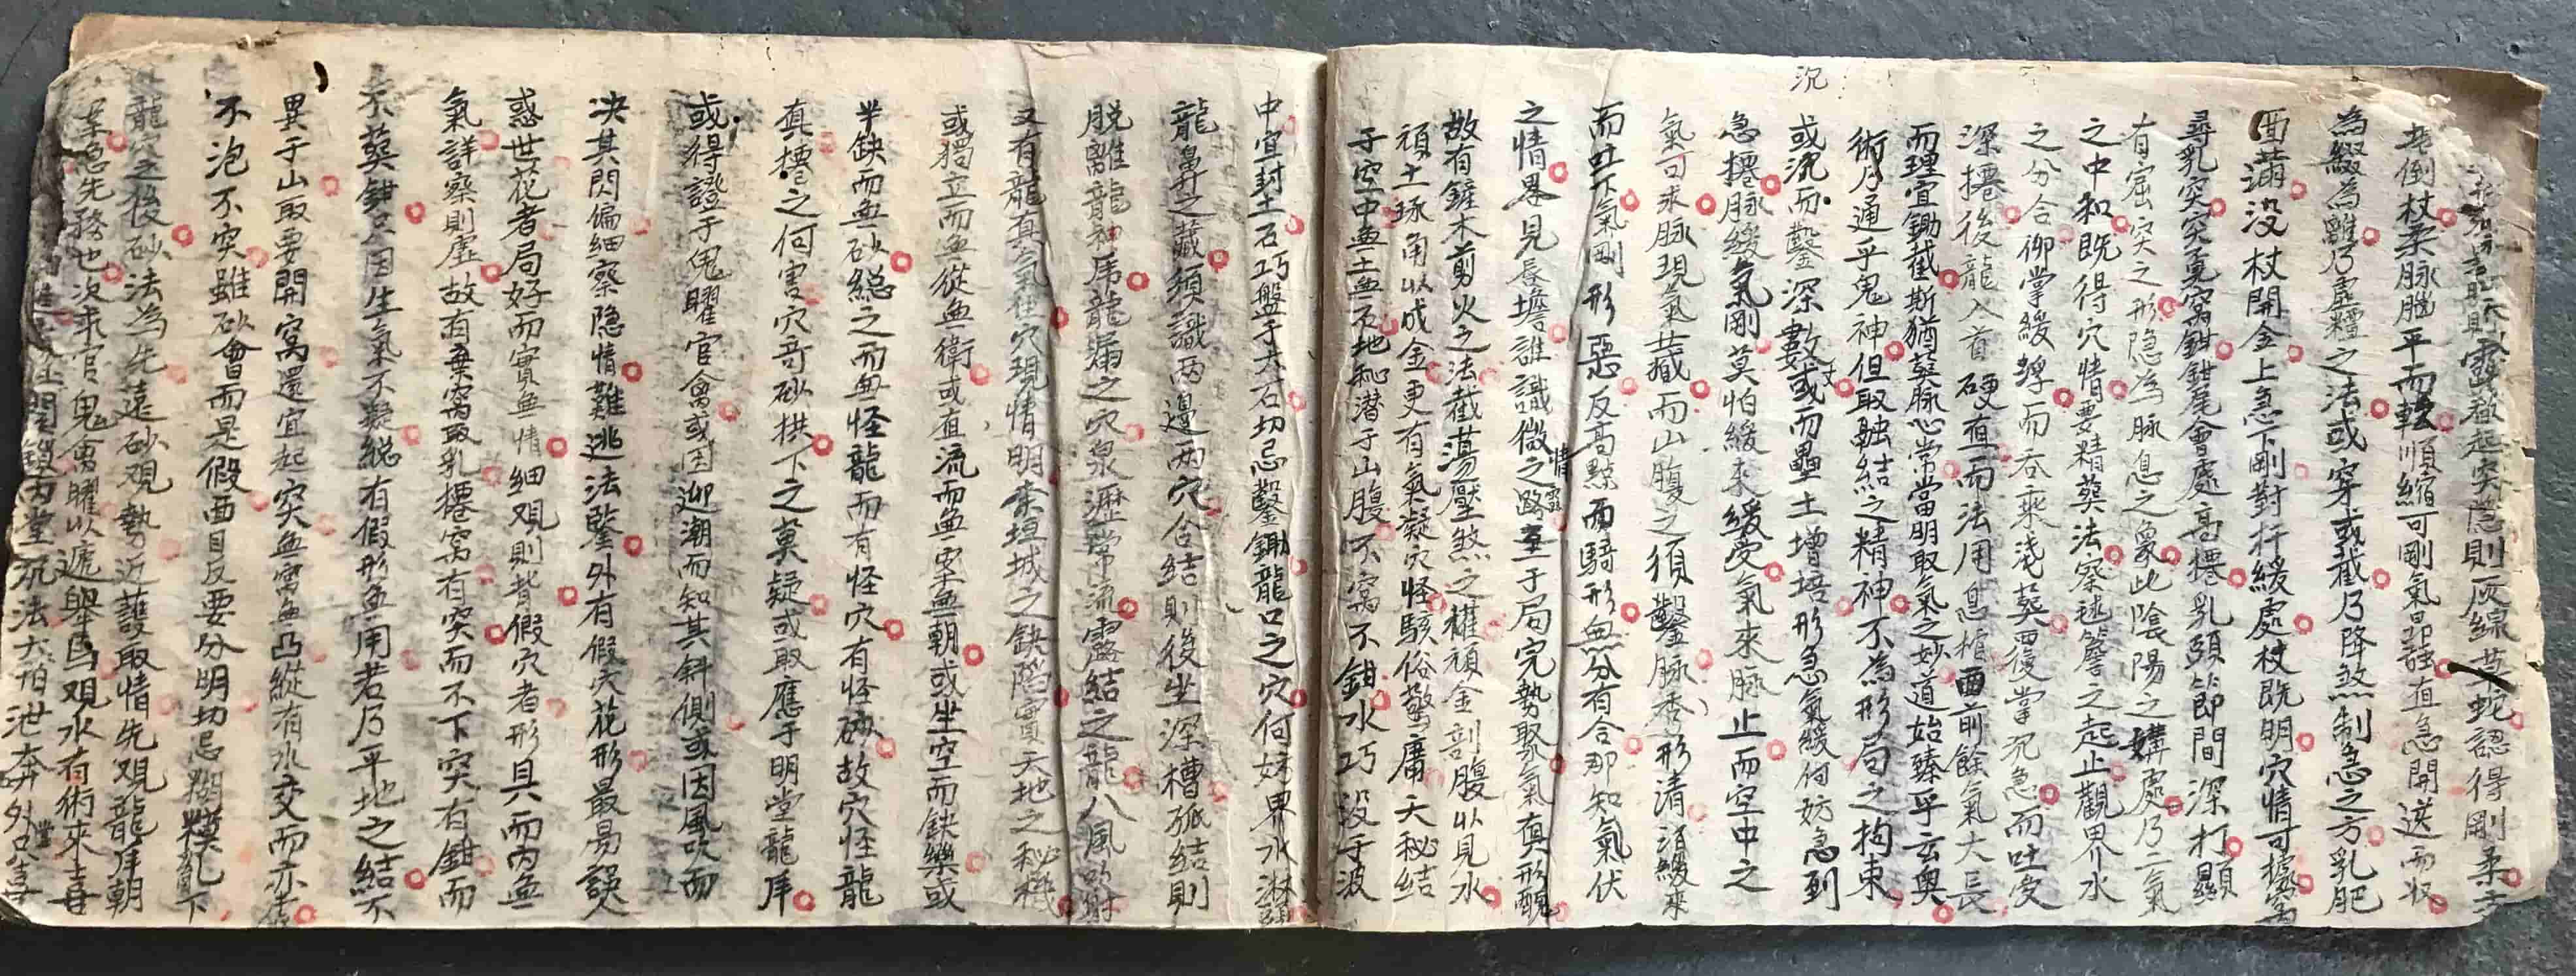 沉
則灰線草蛇認得剛柔
老倒杖柔脉脑平而軟順縮可剛氣昂雄直急開送而收
為綴為離乃虛粘之法或穿或截乃降煞制急之方乳肥
面滿没杖開金上急下剛對杆緩處杖既明穴情可據窩
尋乳突突覓窩鉗鉗尾會處高捲乳頭節間深打顯
有窟突之形隐為脉息之象此陰陽之媾處乃二氣
之中和既得穴情要精葬法察毬簷之起止觀界水
之分合仰掌緩蟬而吞來淺葬覆掌沉急而吐受
深捲後龍入首硬直而法用急棺面前餘氣大長
而理宜鋤截斯猶葬脉心常當明取氣之妙道始臻乎云奥
術乃通乎鬼神但取融結之精神不為形局之拘束
或流而鑿深數或而壘土增培形急氣緩何妨急到
急捲脉緩氣剛莫怕緩來緩受氣來脉止而空中之
氣可求脉現氣藏而山腹之須鑿脉秀形清消緩來
而吐下氣剛形惡反高點而騎形無分有合那知氣伏
之情界見唇墻誰識微之情露路至于局完勢聚氣真形醜
故有鏟木剪火之法截蕩壓煞之權頑金剖腹以見水
頑土琢角以成金更有氣凝穴怪駭俗驚庸天秘結
于空中無土無石地秘潛于山腹不窩不鉗水巧没于波
中宜封土石巧盤于大石切忌鑿鋤龍口之穴何妨界水淋頭
龍鼻之藏須識两邊两穴合結則後坐深槽孤結則
脱離龍神虎龍漏之穴泉瀝常流露結之龍八風吹射
又有龍真氣住穴現情明棄垣城之缺陷實天地之秘機
或獨立而無從無衛或直流而無案無朝或坐空而缺樂或
半缺而無砂総之而無怪龍而有怪穴有怪砂故穴怪龍
真捲之何害穴奇砂拱下之莫疑或取應于明堂龍虎
或得證于鬼曜官禽或因迎潮而知其斜側或因風吹而
决其閃偏細察隐情難逃法鑒外有假穴花形最易誤
惑世花者局好而實無情細观則皆假穴者形具而内無
氣詳察則虛故有棄窩取乳捲窩有突而不下突有鉗而
不葬鉗只因生氣不凝総有假形無用若乃平地之結不
異于山取要開窩還宜起突無窩無凸縱有水交而亦虛
不泡不突雖砂會而是假面目反要分明切忌糊模乳下
龍穴之後砂法為先遠砂观勢近護取情先观龍虎朝
案急先務也次求官鬼禽曜以遞舉焉观水有術來喜
関鎖内堂玩法大怕泄奔外堂喜